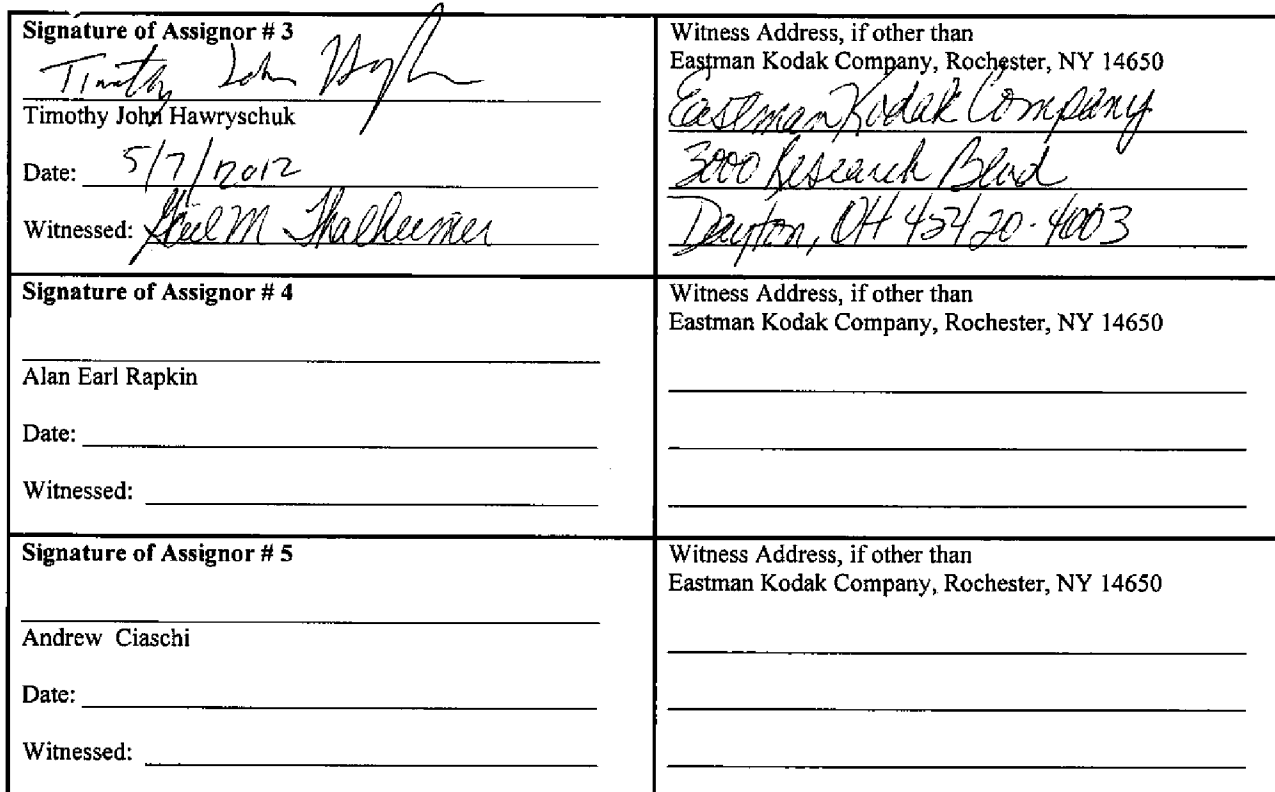 Signature of Assignor # 3
Timothy John
Timothy John Hawryschuk
Date: 5/7/2012
Witnessed: M Thalheimer
Witness Address, if other than
Eastman Kodak Company, Rochester, NY 14650
Eastman Kodak Company
3000 Research Blvd
Dayton, OH 45420-4003
Signature of Assignor # 4
Alan Earl Rapkin
Date:
Witnessed:
Witness Address, if other than
Eastman Kodak Company, Rochester, NY 14650
Signature of Assignor # 5
Andrew Ciaschi
Date:
Witnessed:
Witness Address, if other than
Eastman Kodak Company, Rochester, NY 14650